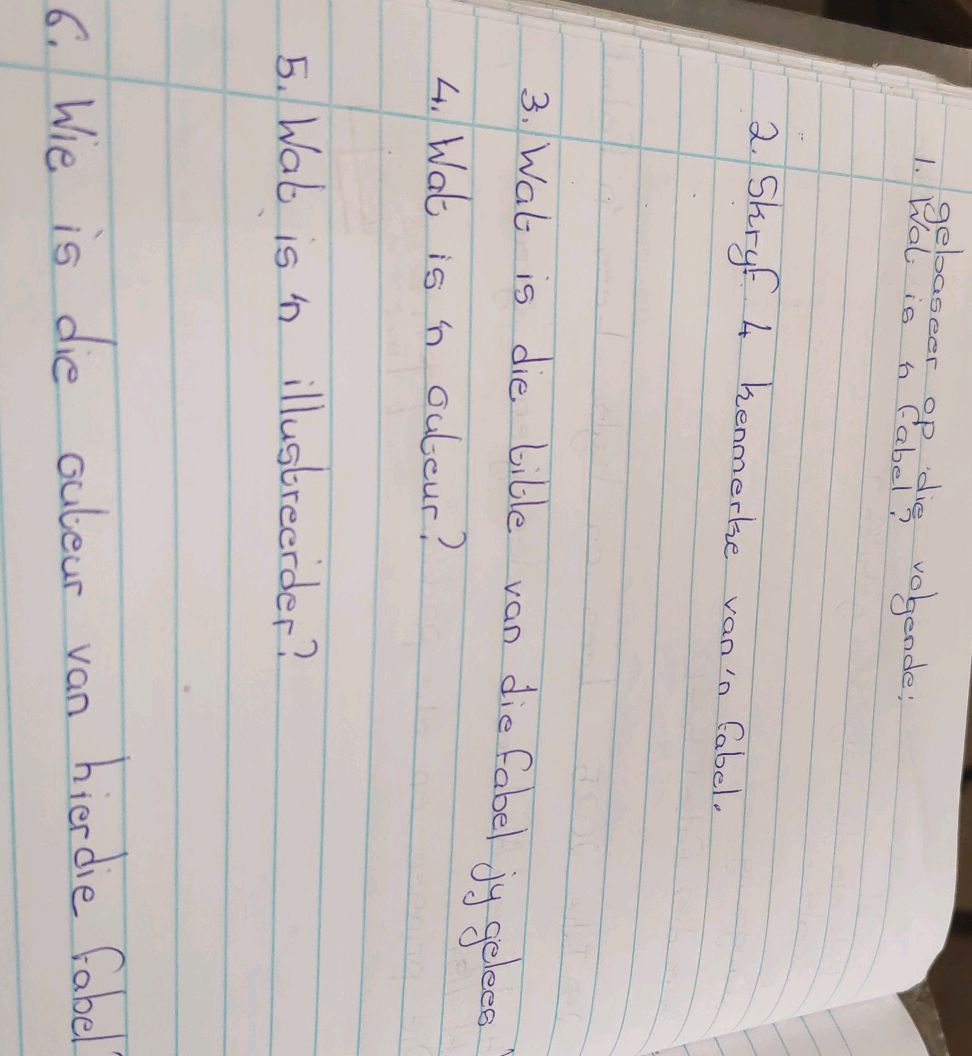 gebaseer op die volgende:
1. Wat is 'n fabel?
2. Skryf 4 kenmerke van 'n fabel.
3. Wat is die title van die fabel jy gelees
4. Wat is 'n outeur?
5. Wat is 'n illustreerder?
6. Wie is die outeur van hierdie fabel?